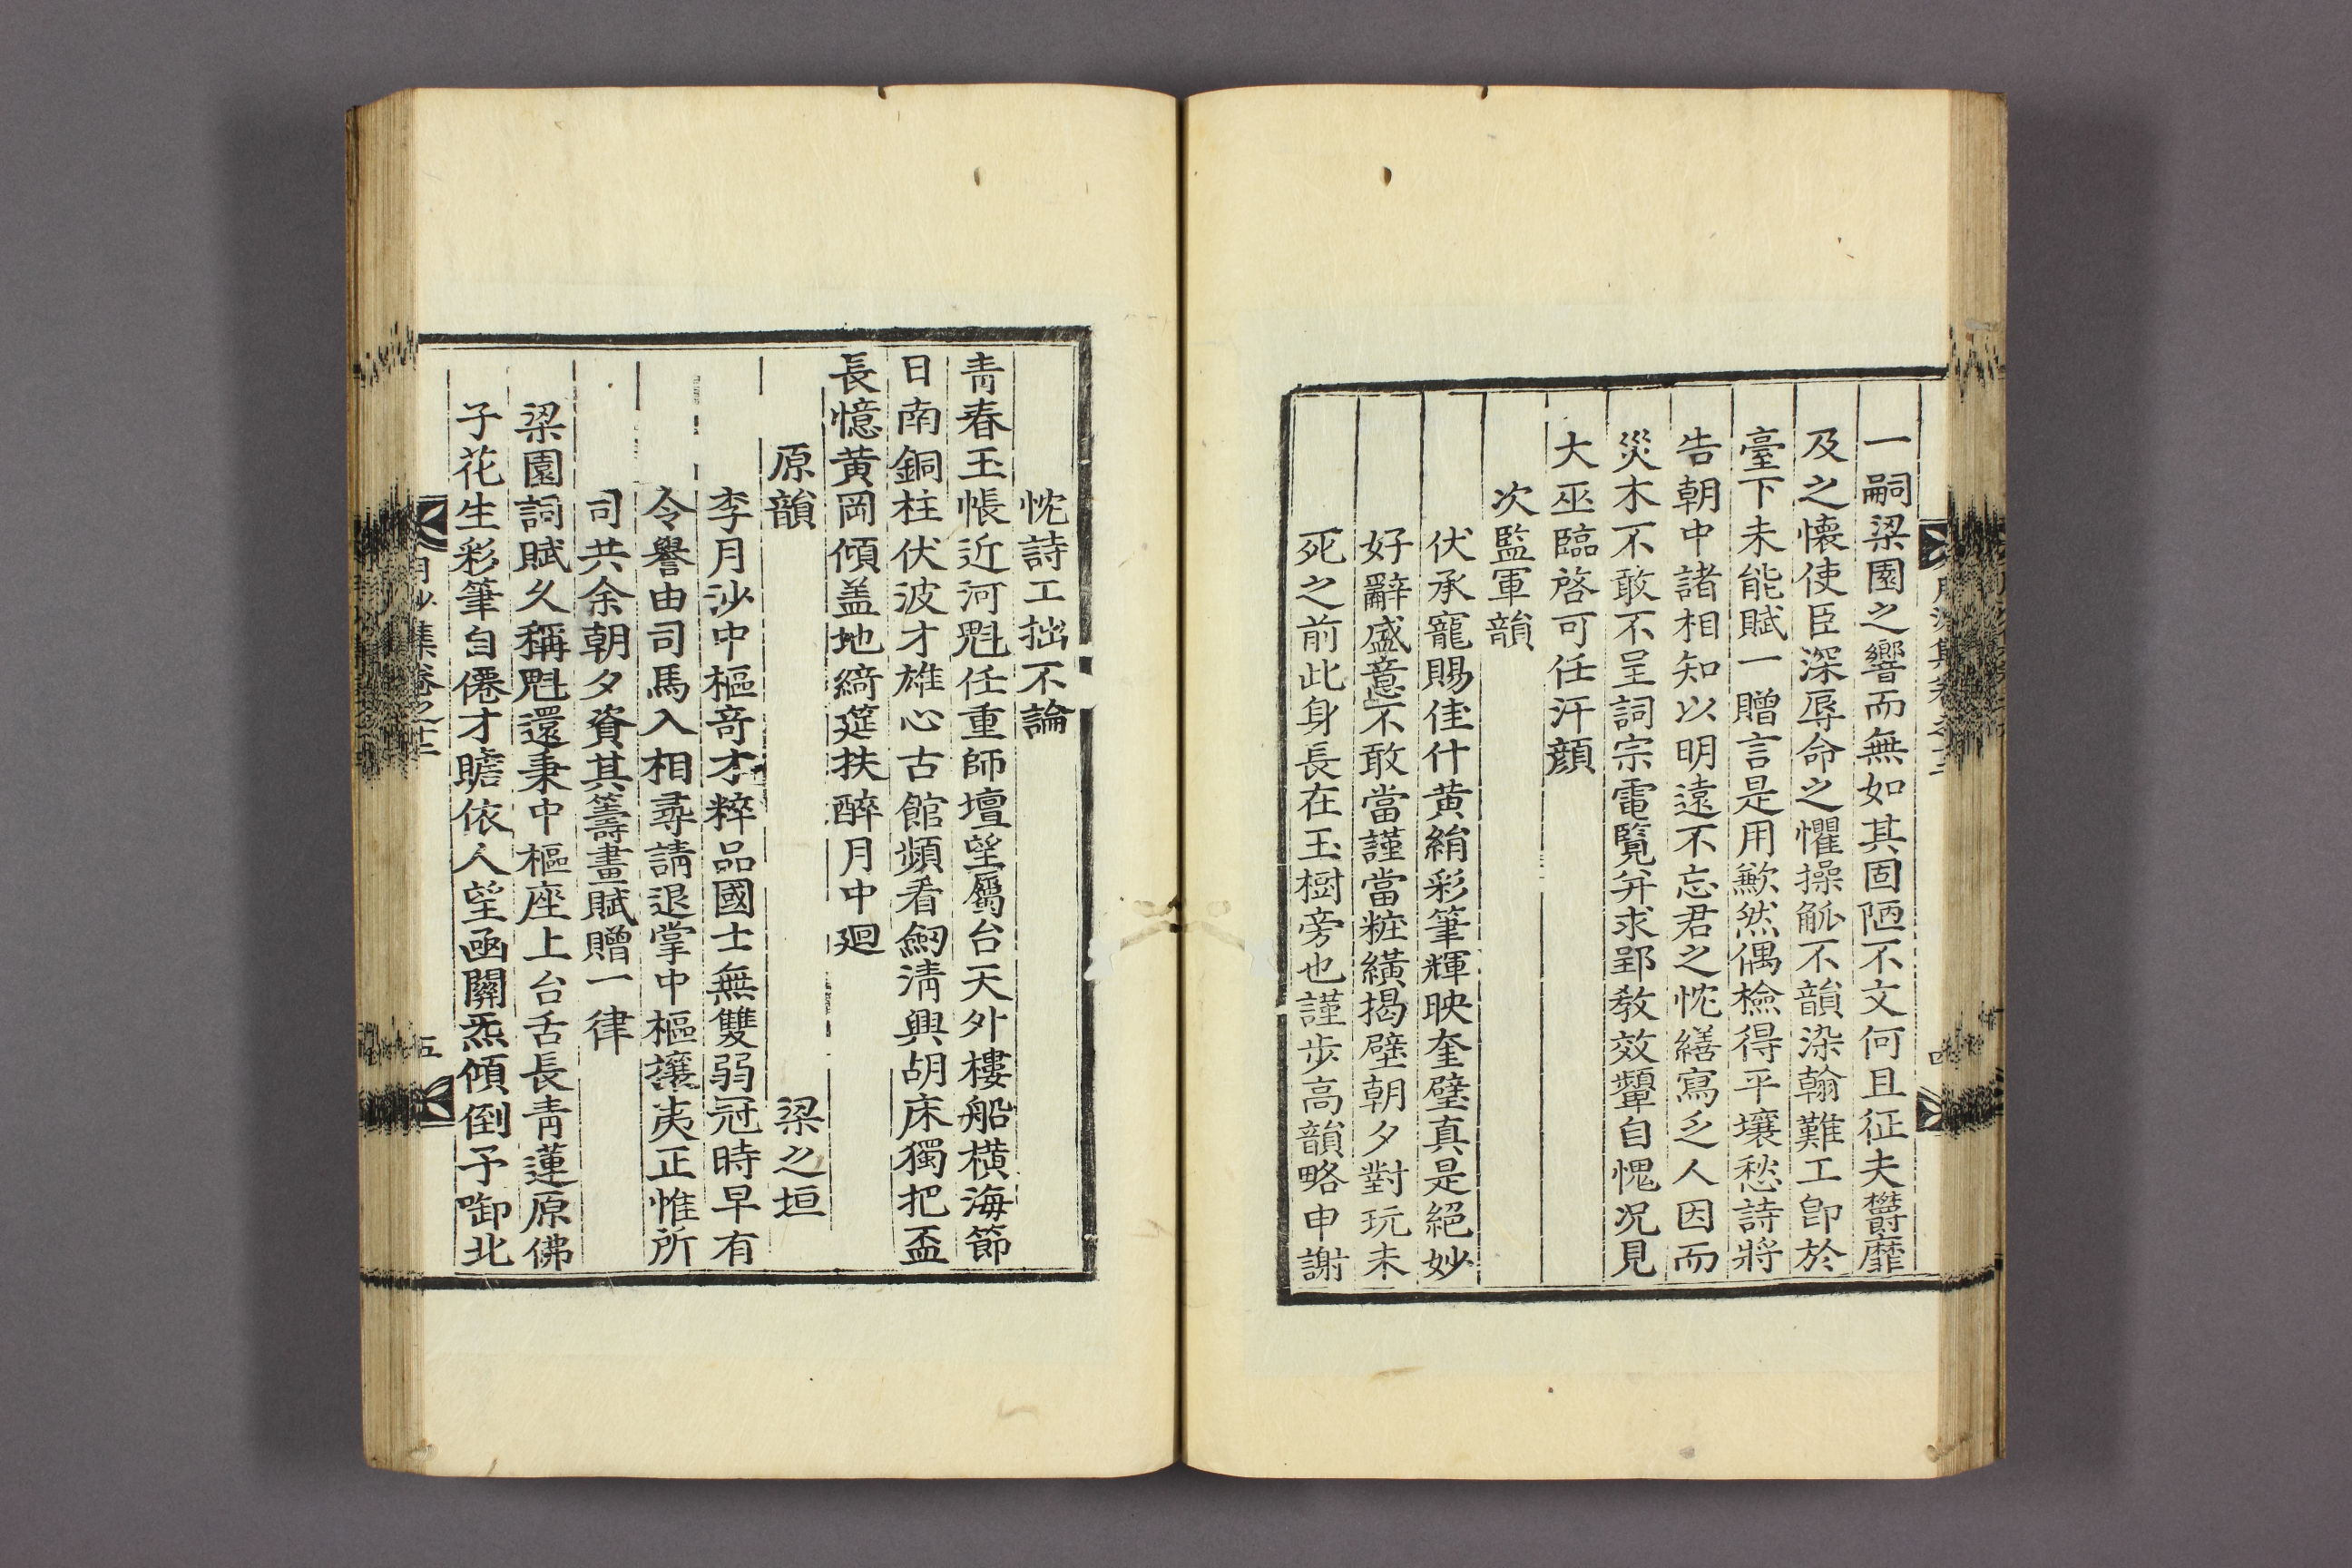 一嗣梁園之響而無如其固陋不文何且征夫欝靡
及之懷使臣深辱命之懼操觚不韻染翰難工卽於
臺下未能賦一贈言是用歉然偶檢得平壤愁詩將
告朝中諸相知以明遠不忘君之忱繕寫乏人因而
災木不敢不呈詞宗電覽幷求郢敎效顰自愧况見
大巫臨啓可任汗顔
次監軍韻
伏承寵賜佳什黃絹彩筆輝映奎璧真是絕妙
好辭盛意不敢當謹當粧䌙揭壁朝夕對玩未
死之前此身長在玉樹旁也謹步高韻略申謝
忱詩工拙不論
靑春玉帳近河魁任重師壇望屬台天外樓船橫海節
日南銅柱伏波才雄心古館頻看劒淸興胡床獨把盃
長憶黃岡傾盖地綺筵扶醉月中廻
原韻 梁之垣
李月沙中樞竒才粹品國士無雙弱冠時早有
令譽由司馬入相尋請退掌中樞讓夷正惟所
司共余朝夕資其籌畫賦贈一律
梁園詞賦久稱魁還秉中樞座上台舌長靑蓮原佛
子花生彩筆自僊才瞻依人望函關炁傾倒予啣北
月沙集卷之十二
五